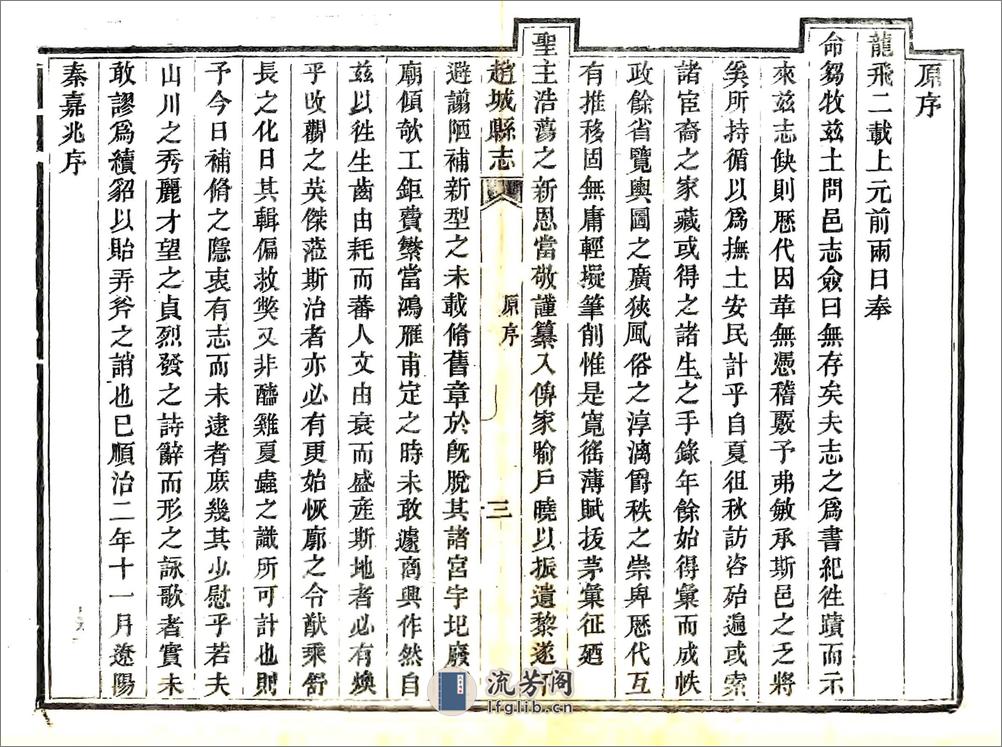 原序
龍飛二載上元前兩日奉
命芻牧兹土問邑志僉曰無存矣夫志之爲書紀徃蹟而示
來兹志缺則歷代因革無憑稽覈予弗敏承斯邑之乏將
奚所持循以爲撫土安民計乎自夏徂秋訪咨殆遍或索
諸宦裔之家藏或得之諸生之手錄年餘始得彙而成帙
政餘省覽輿圖之廣狹風俗之淳漓爵秩之崇卑歷代互
有推移固無庸輕擬筆削惟是寬徭薄賦拔茅彙征廼
聖主浩蕩之新恩當敬謹纂入俾家喻戶曉以振遺黎遂
趙城縣志
原序
三
避譾陋補新型之未載脩舊章於旣脫其諸宮宇圮廢
廟傾欹工鉅費繁當鴻雁甫定之時未敢遽商興作然自
兹以徃生齒由耗而蕃人文由衰而盛産斯地者必有煥
乎改觀之英傑蒞斯治者亦必有更始恢廓之令猷乘舒
長之化日其輯偏救獘又非醯雞夏蟲之識所可計也則
予今日補脩之隱衷有志而未逮者庶幾其少慰乎若夫
山川之秀麗才望之貞烈發之詩辭而形之詠歌者實未
敢謬爲續貂以貽弄斧之誚也已順治二年十一月遼陽
秦嘉兆序
流芳阁
lfglib.cn